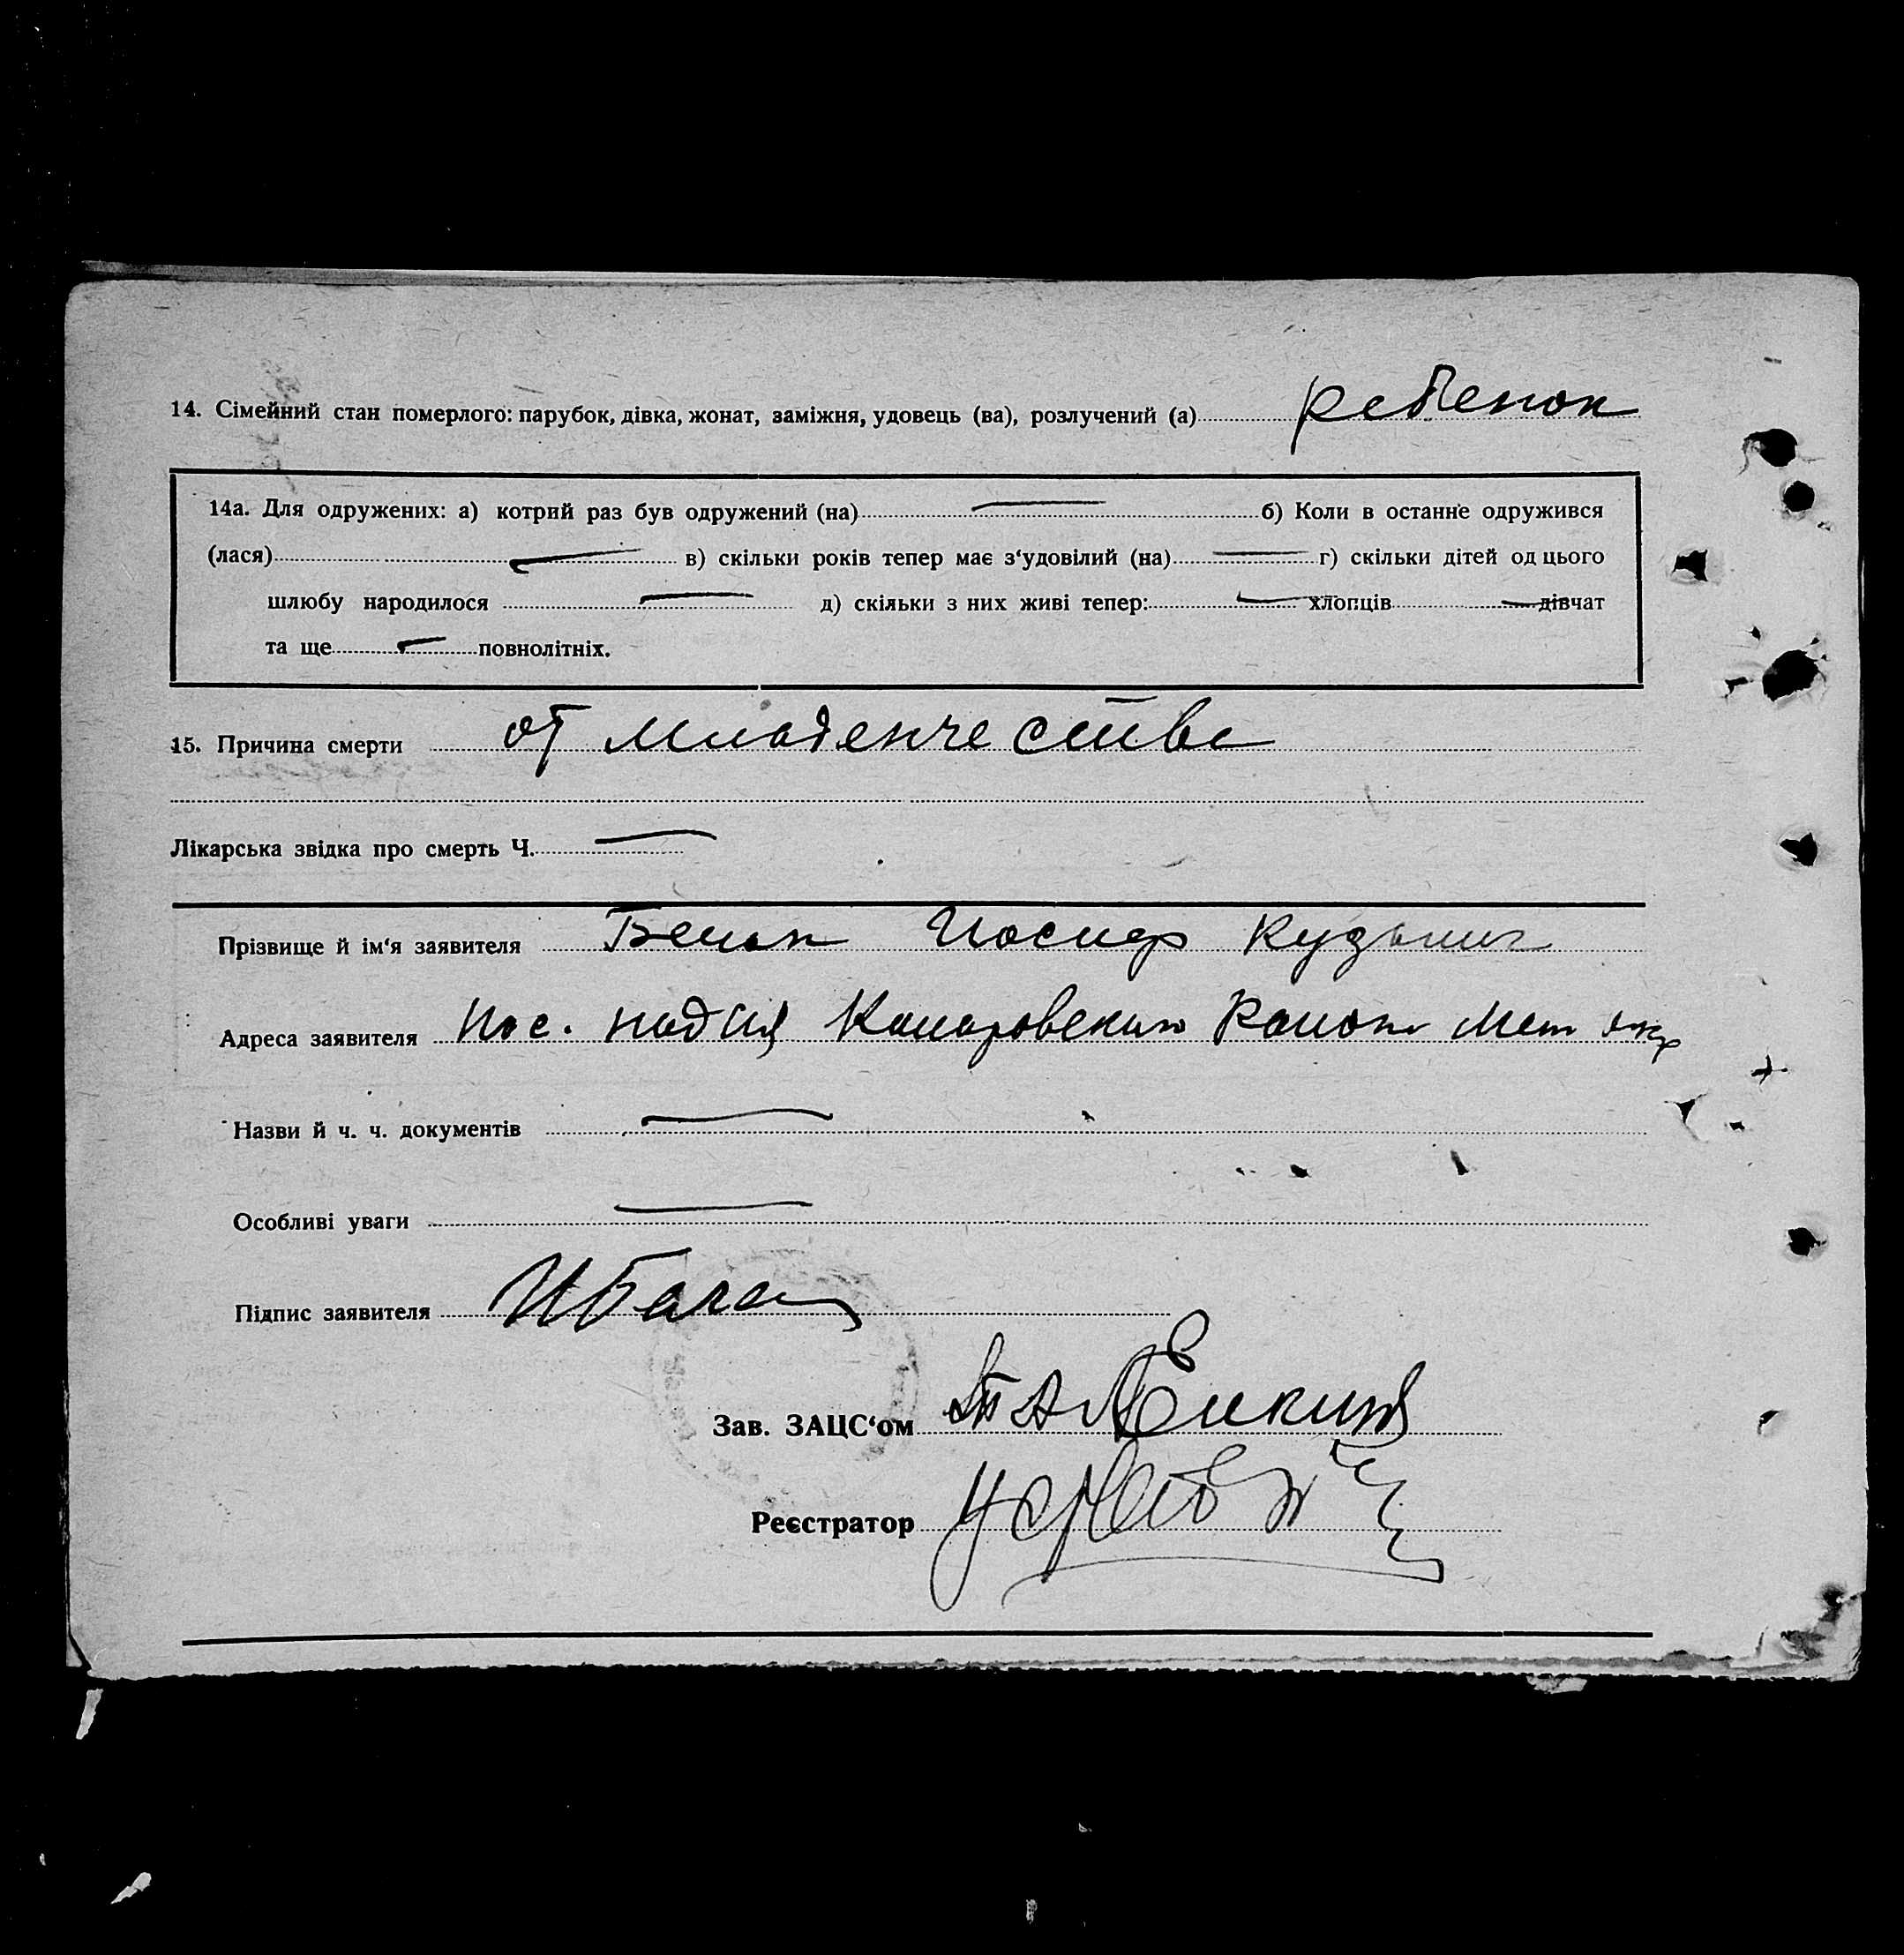 14. Сімейний стан померлого: парубок, дівка, жонат, заміжня, удовець (ва), розлучений (а) ребенок
14а. Для одружених: а) котрий раз був одружений (на) — б) Коли в останнє одружився
(лася) — в) скільки років тепер має з‘удовілий (на) — г) скільки дітей од цього
шлюбу народилося — д) скільки з них живі тепер: — хлопців — дівчат
та ще — повнолітніх.
15. Причина смерти от младенчества
Лікарська звідка про смерть Ч. —
Прізвище й ім‘я заявителя Иосиф
Адреса заявителя пос. Надия Района
Назви й ч. ч. документів —
Особливі уваги —
Підпис заявителя
Зав. ЗАЦС‘ом
Реєстратор